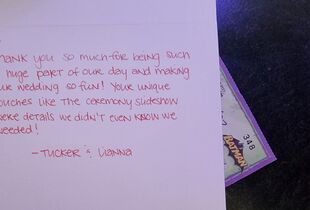 THANK YOU SO MUCH FOR BEING SUCH
HUGE PART OF OUR DAY AND MAKING
OUR WEDDING SO FUN! YOUR UNIQUE
TOUCHES LIKE THE CEREMONY SLIDESHOW
WERE DETAILS WE DIDN'T EVEN KNOW WE
NEEDED!
-TUCKER & LIANNA
348
BATMAN